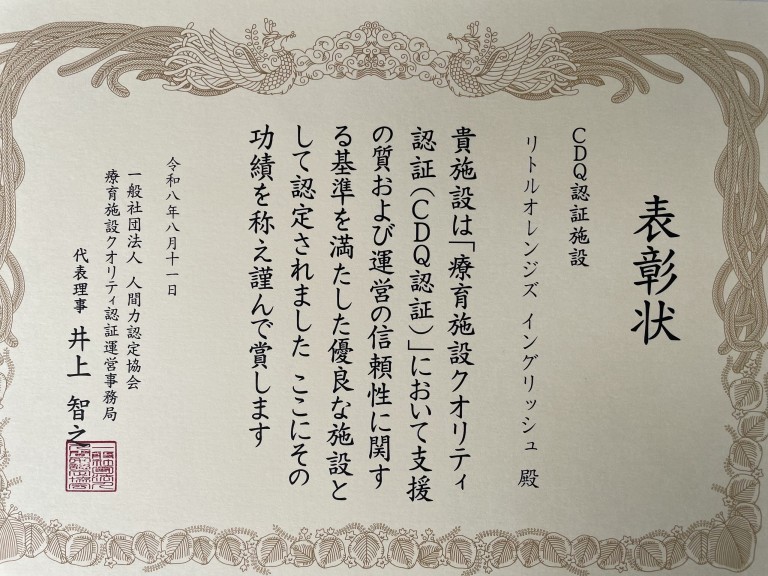 表彰状
CDQ認証施設
リトルオレンジズ イングリッシュ 殿
貴施設は「療育施設クオリティ
認証(CDQ認証)」において支援
の質および運営の信頼性に関す
る基準を満たした優良な施設と
して認定されました ここにその
功績を称え謹んで賞します
令和八年八月十一日
一般社団法人 人間力認定協会
療育施設クオリティ認証運営事務局
代表理事 井上 智之